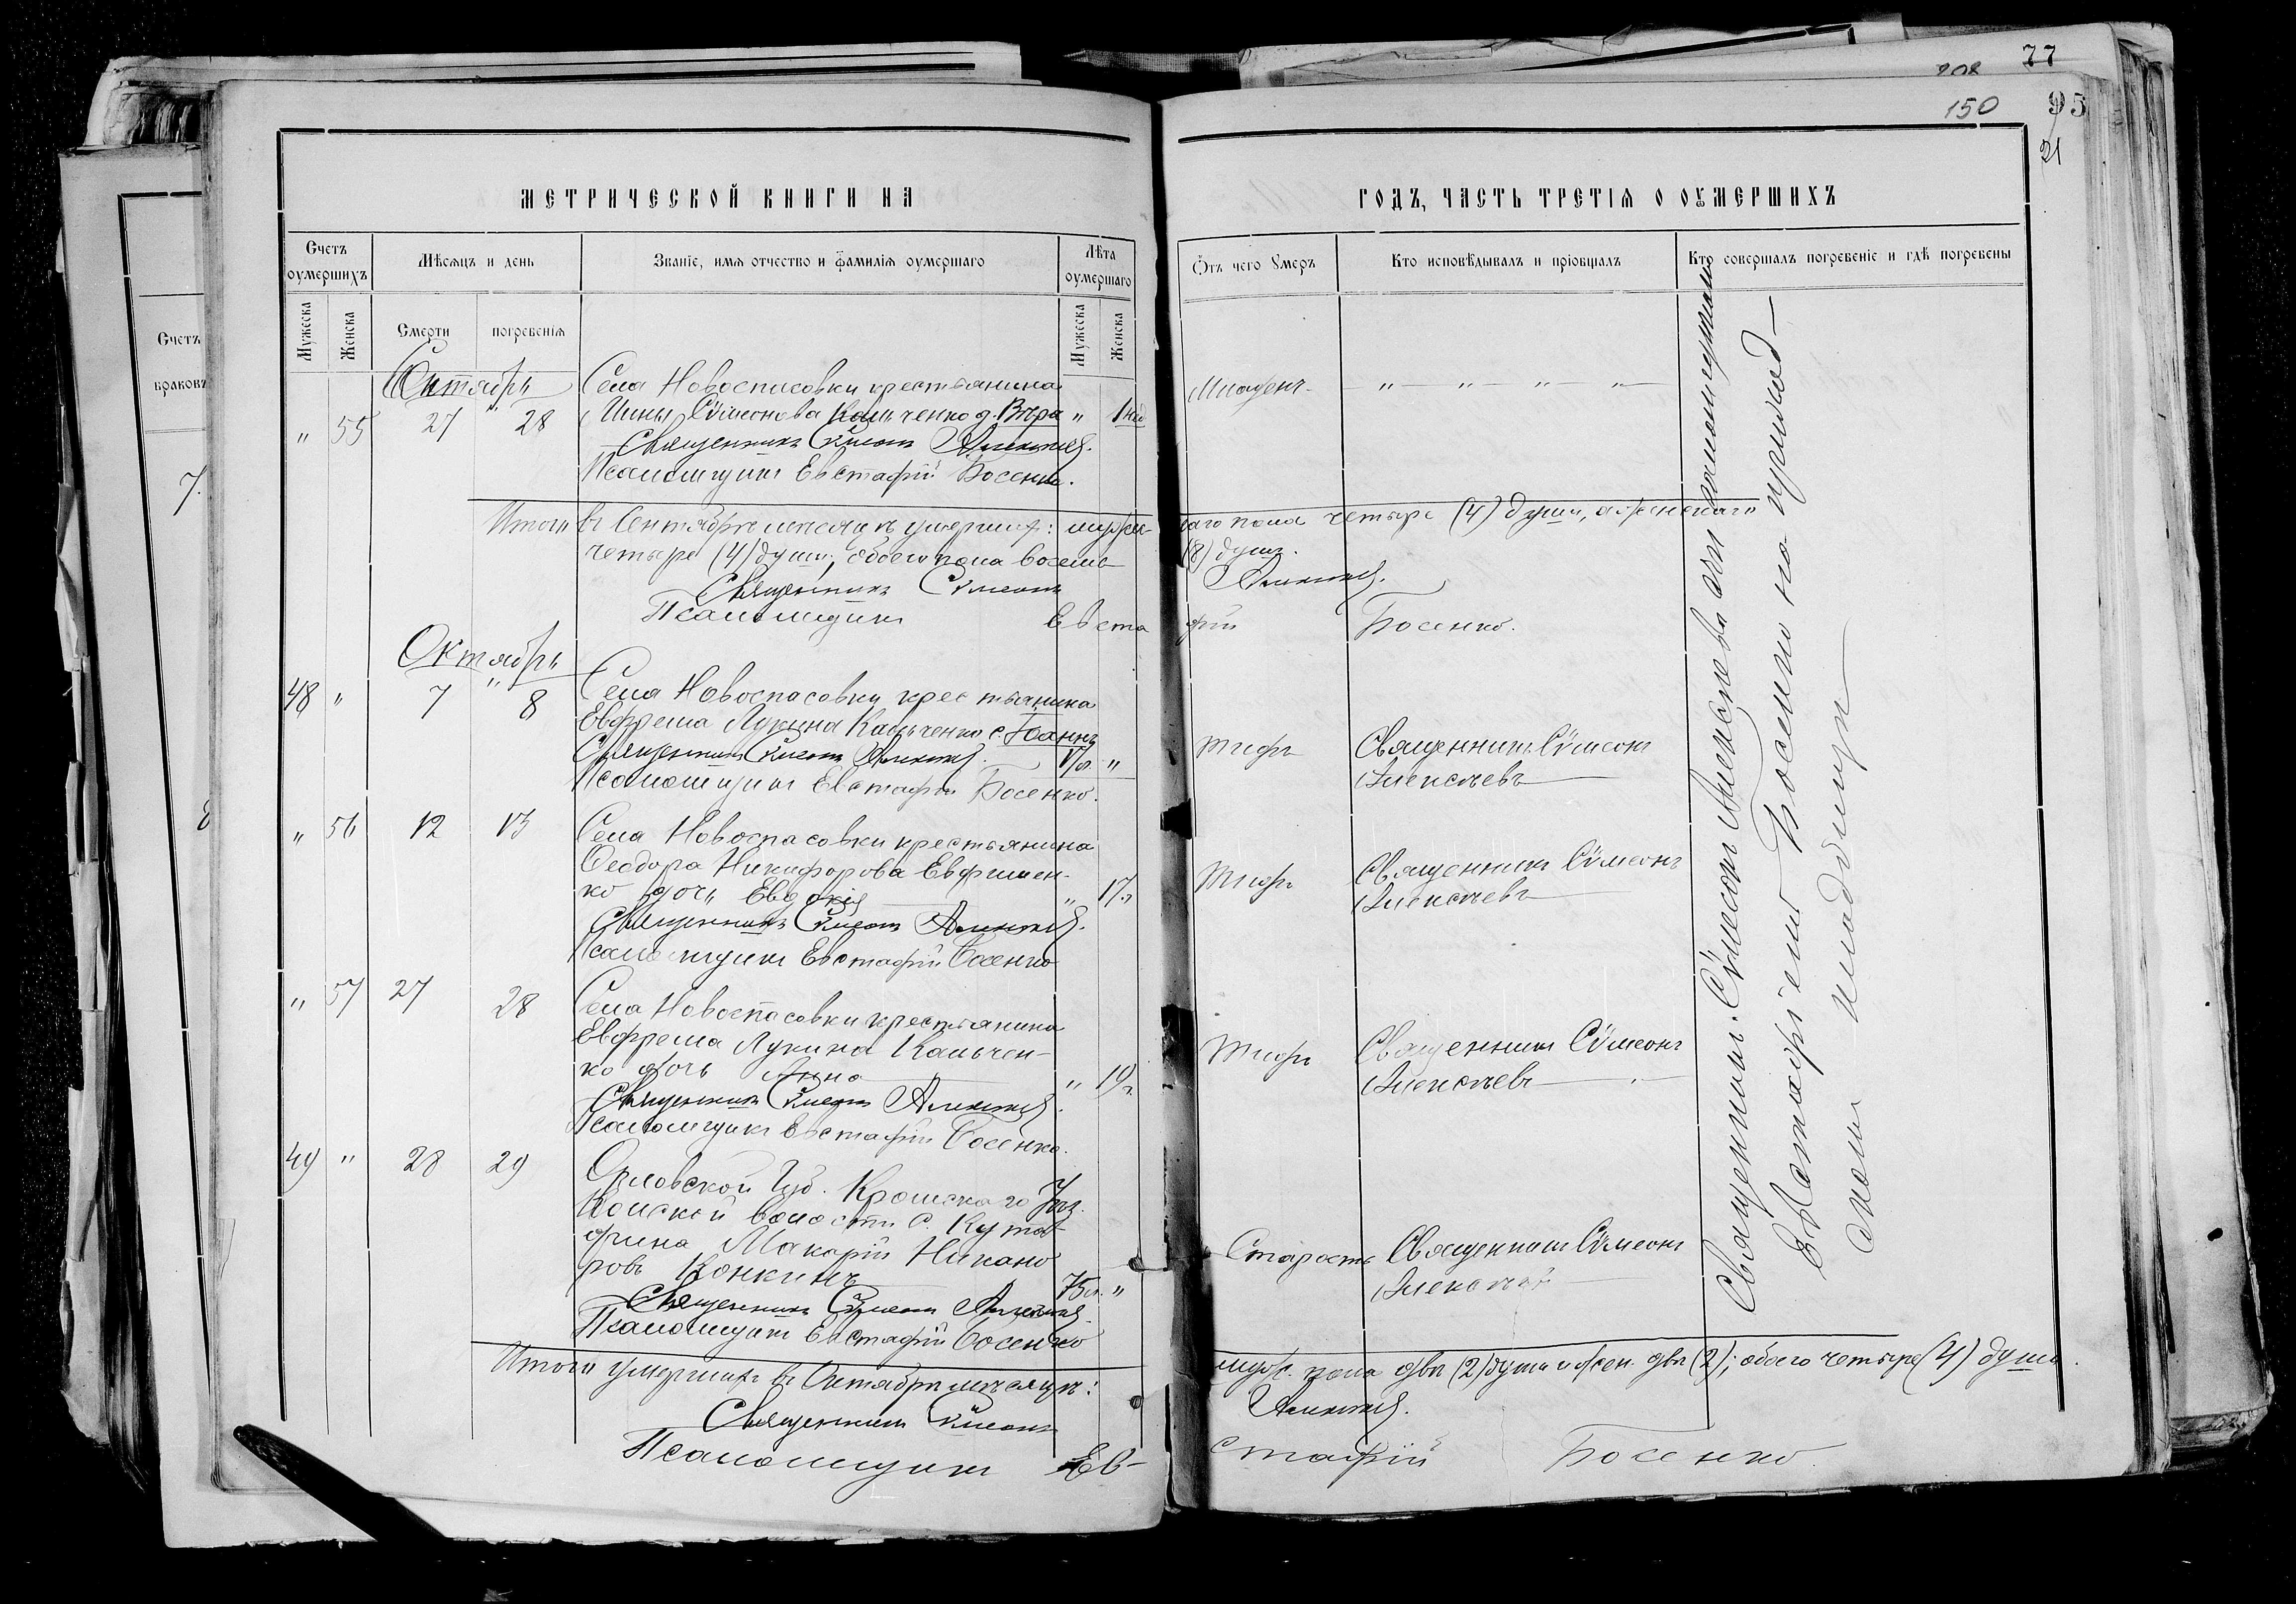 77
208
150
95
21
МЕТРИЧЕСКОЙ КНИГИ НА
ГОДЪ, ЧАСТЬ ТРЕТІѦ О ОУМЕРШИХЪ
Счетъ оумершихъ
Мѣсяцъ и день
Званіе, имя отчество и фамилія оумершаго
Лѣта оумершаго
Отъ чего Умеръ
Кто исповѣдывалъ и пріобщалъ
Кто совершалъ погребеніе и гдѣ погребены
Мужеска
Женска
Смерти
погребенія
Мужеска
Женска
Счетъ
браковъ
7.
8
Октябрь
Села Новоспасовки крестьянина
" 55 27 " 28 Симеонова Кальченко д. Вѣра " 1 нед
Младенч. — " — " — " — " —
Священникъ Сѵмеонъ Алексѣевъ.
Псаломщикъ Евстафій Босенко.
Итого въ Сентябрѣ мѣсяцѣ умершихъ: мужес-
каго пола четыре (4) души, а женскаго
четыре (4) души, обоего пола восемь
(8) душъ.
Священникъ Сѵмеонъ
Алексѣевъ.
Псаломщикъ Евста
фій Босенко.
Октябрь
48 " 7 " 8 Села Новоспасовки крестьянина
Евфрема Лукина Кальченко с. Іоаннъ
17 л. "
Тифъ
Священникъ Сѵмеонъ
Алексѣевъ
Священникъ Сѵмеонъ Алексѣевъ.
Псаломщикъ Евстафій Босенко.
" 56 12 13 Села Новоспасовки крестьянина
Ѳеодора Никифорова Евфимен-
ко дочь Евдокія " 17 л
Тифъ
Священникъ Сѵмеонъ
Алексѣевъ
Священникъ Сѵмеонъ Алексѣевъ.
Псаломщикъ Евстафій Босенко
" 57 27 28 Села Новоспасовки крестьянина
Евфрема Лукина Кальчен-
ко дочь Анна "
Тифъ
Священникъ Сѵмеонъ
Алексѣевъ
Священникъ Сѵмеонъ Алексѣевъ.
Псаломщикъ Евстафій Босенко.
49 " 28 29 Орловской Губ. Кромскаго Уѣз.
волости с. Кута-
фина Макарій Никано
ровъ Конкинъ 75 л. "
Старость
Священникъ Сѵмеонъ
Алексѣевъ
Священникъ Сѵмеонъ Алексѣевъ.
Псаломщикъ Евстафій Босенко
Итого умершихъ въ Октябрѣ мѣсяцѣ:
муж. пола двѣ (2) души и жен. двѣ (2); обоего четыре (4) души.
Священникъ Сѵмеонъ
Алексѣевъ.
Псаломщикъ Ев-
стафій Босенко.
Священникъ Сѵмеонъ Алексѣевъ съ псаломщикомъ
Евстафіемъ Босенко на приход-
скомъ кладбищѣ